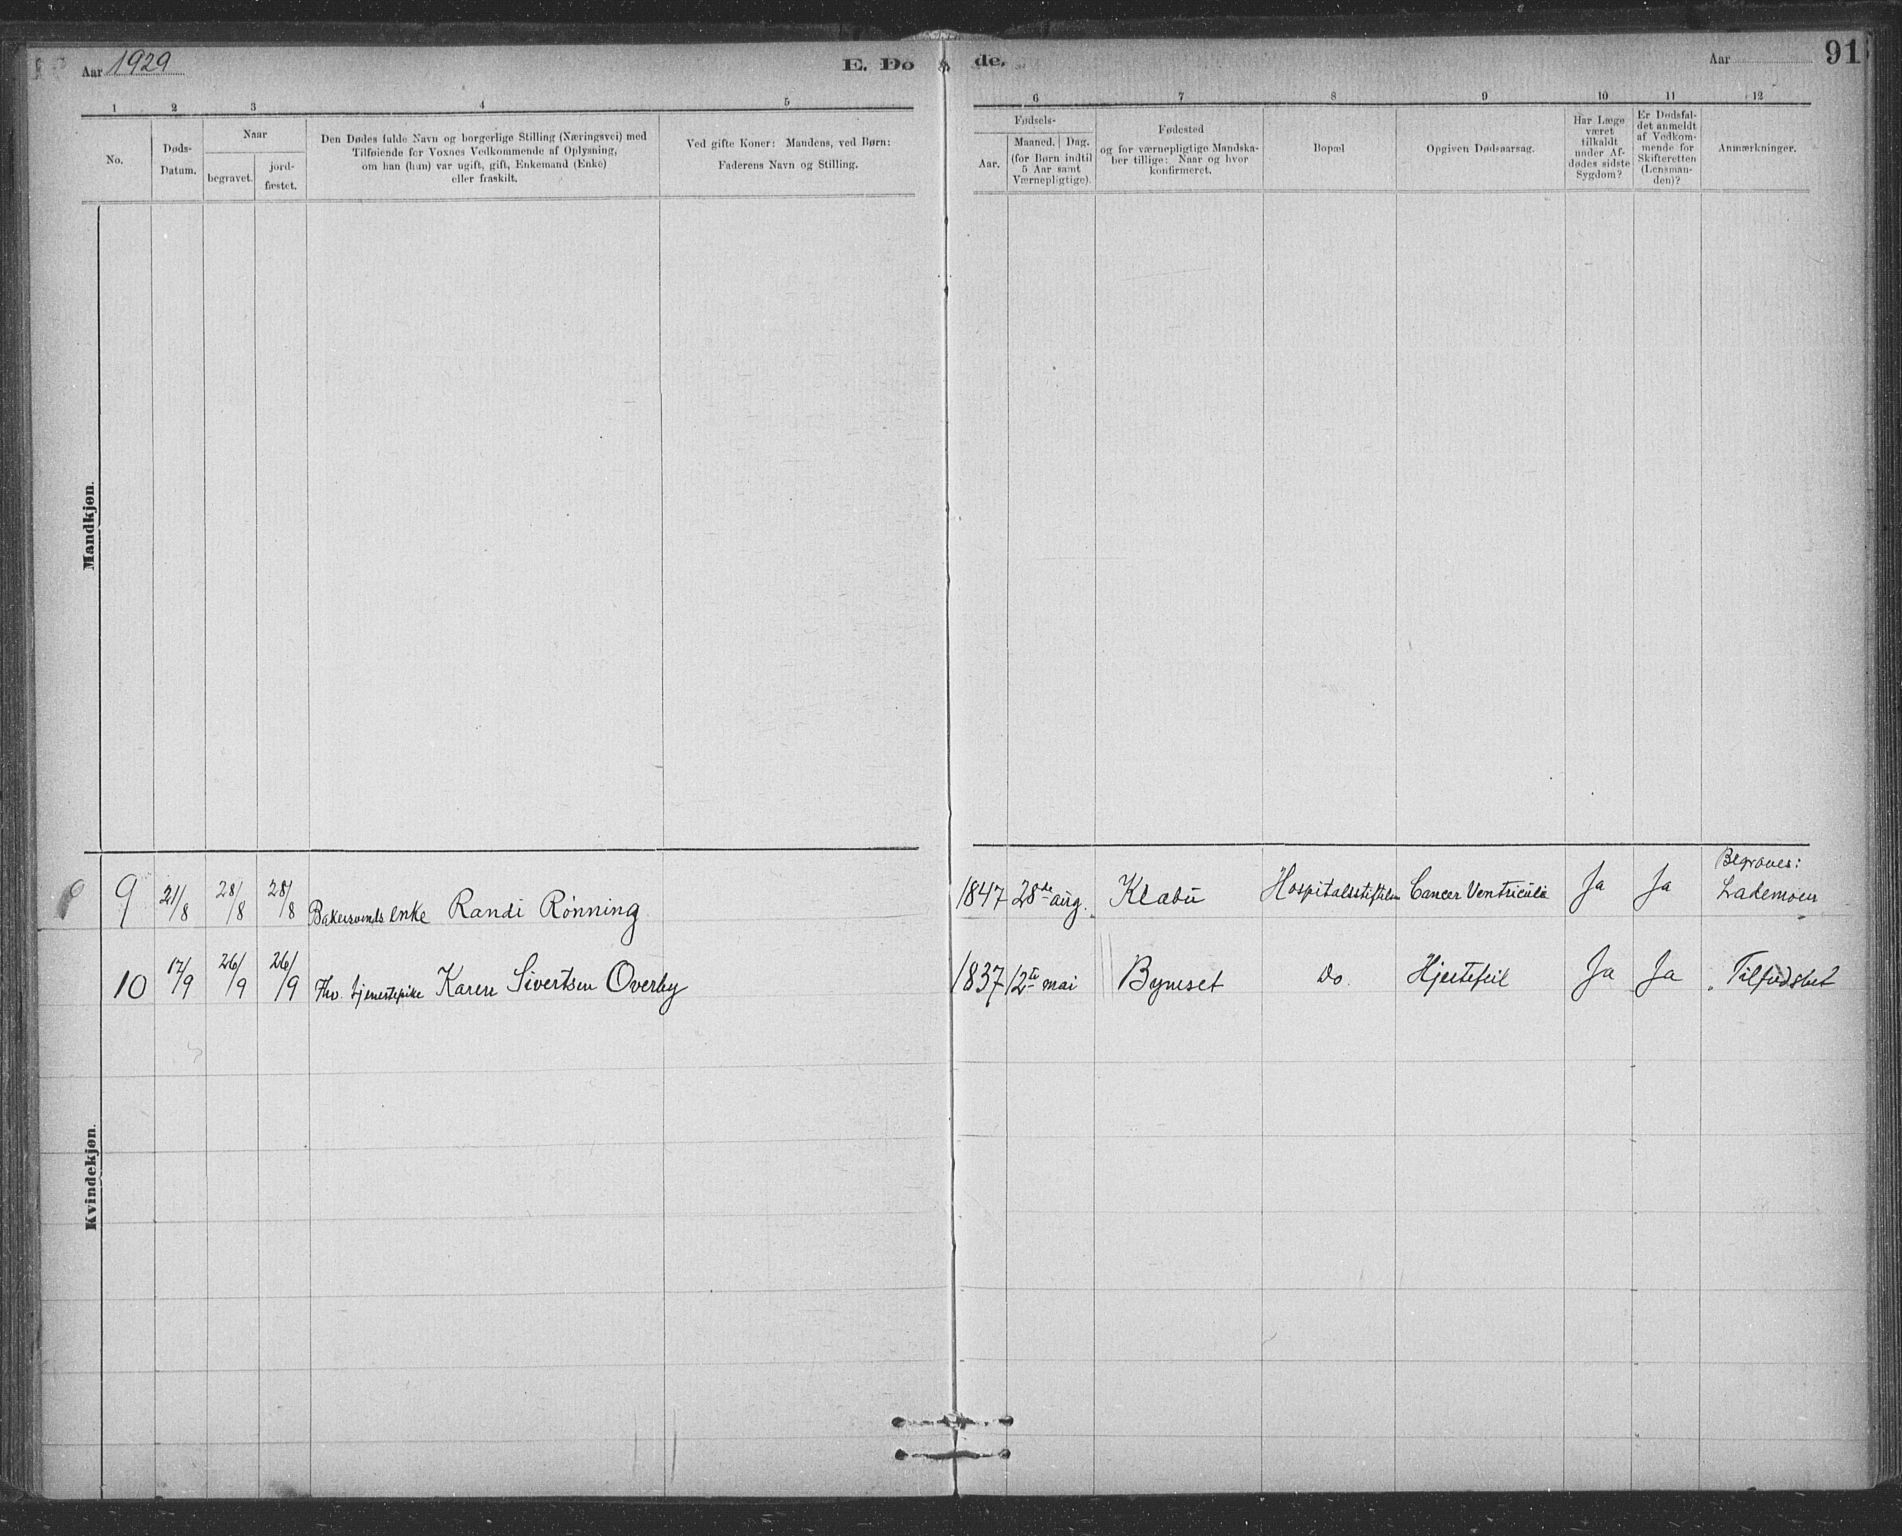 Aar 1929
E. Dø
de.
Aar
91
1 2 3 4 5
6 7 8 9 10 11 12
No.
Døds-
Datum.
Naar
begravet.
jord-
fæstet.
Den Dødes fulde Navn og borgerlige Stilling (Næringsvei) med
Tilføiende for Voxnes Vedkommende af Oplysning,
om han (hun) var ugift, gift, Enkemand (Enke)
eller fraskilt.
Ved gifte Koner: Mandens, ved Børn:
Faderens Navn og Stilling.
Fødsels-
Aar.
Maaned. Dag.
(for Børn indtil
5 Aar samt
Værnepligtige).
Fødested
og for værnepligtige Mandska-
ber tillige: Naar og hvor
konfirmeret.
Bopæl
Opgiven Dødsaarsag.
Har Læge
været
tilkaldt
under Af-
dødes sidste
Sygdom?
Er Dødsfal-
det anmeldt
af Vedkom-
mende for
Skifteretten
(Lensman-
den)?
Anmærkninger.
Mandkjøn.
Kvindekjøn.
Begraves:
9 21/8 28/8 28/8 Bakersvends enke Randi Rönning 1847 28de aug. Klæbu Hospitalsstiftelsen Cancer Ventriculi Ja Ja Lademoen
10 17/9 26/9 26/9 Fhv. tjenestepike Karen Sivertsen Overby 1837 12te mai Byneset Do. Hjertefeil Ja Ja Tilfredshet